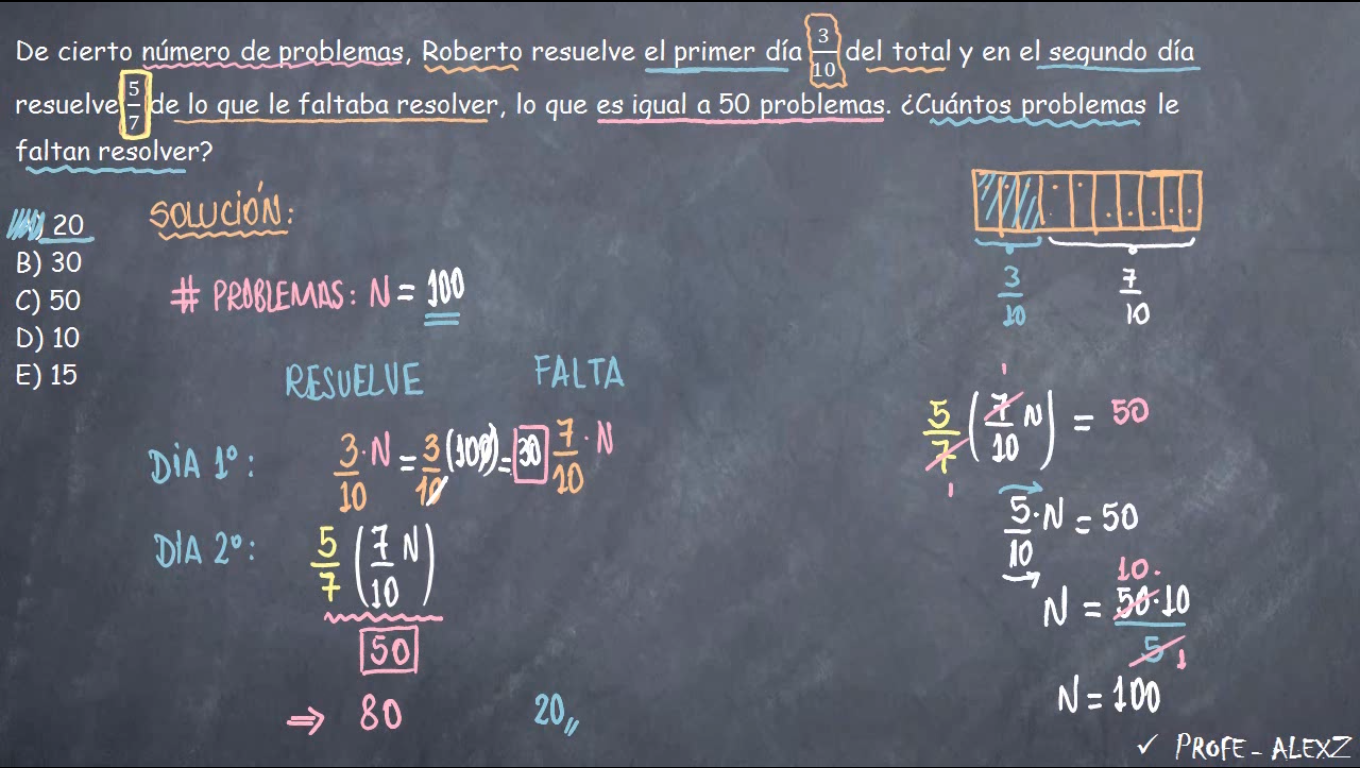 De cierto número de problemas, Roberto resuelve el primer día 3/10 del total y en el segundo día
resuelve 5/7 de lo que le faltaba resolver, lo que es igual a 50 problemas. ¿Cuántos problemas le
faltan resolver?
20
B) 30
C) 50
D) 10
E) 15
SOLUCIÓN:
# PROBLEMAS: N = 100
RESUELVE FALTA
DIA 1°: 3/10 · N = 3/10 (100) = 30 7/10 · N
DIA 2°: 5/7 (7/10 N)
50
⇒ 80 20,,
3/10 7/10
1
5/7 (7/10 N) = 50
1
5/10 · N = 50
10.
N = 50·10/5
1
N = 100
✓ PROFE - ALEXZ